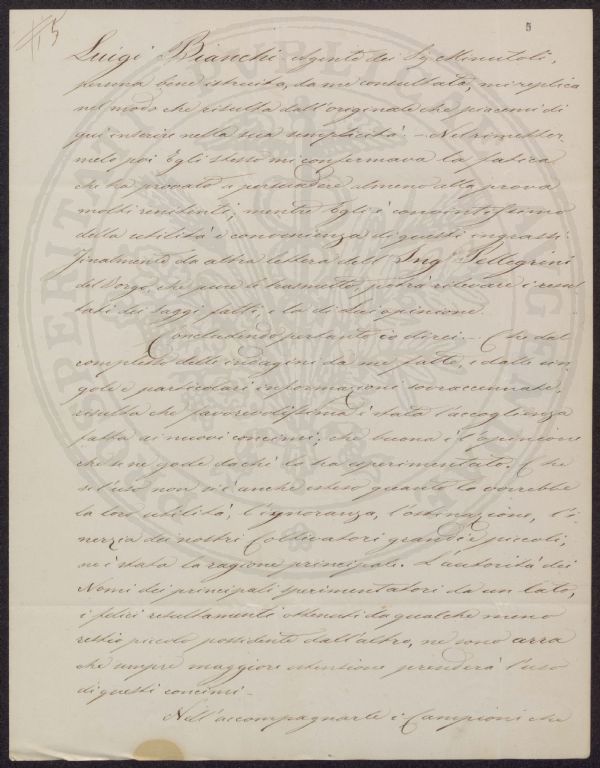 5
Luigi Bianchi Agente dei Sig. Minutoli,
persona bene istruita, da me consultato, mi replica
nel modo che risulta dall'originale che piacemi di
qui inserire nella sua semplicità. — Nel rimetter-
melo poi Egli stesso mi confermava la fatica
che ha provato a persuadere almeno alla prova
molti renitenti, mentre Egli è convintissimo
della utilità e convenienza di questi ingrassi.
Finalmente da altra lettera dell'Ingr. Pellegrini
del Borgo, che pure Le trasmetto, potrà rilevare i resul-
tati dei saggi fatti, e la di lui opinione.
Concludendo pertanto io direi, — Che dal
complesso delle indagini da me fatte, e dalle sin-
gole e particolari informazioni sovraccennate,
risulta che favorevolissima è stata l'accoglienza
fatta ai nuovi concimi; che buona è l'opinione
che se ne gode da chi lo ha esperimentato. Che
se l'uso non si è anche esteso quanto lo vorrebbe
la loro utilità, l'ignoranza, l'ostinazione, l'i-
nerzia dei nostri Coltivatori grandi e piccoli,
ne è stata la ragione principale. L'autorità dei
Nomi dei principali sperimentatori da un lato,
i felici resultamenti ottenuti da qualche meno
restio piccolo possidente dall'altro, ne sono arra
che sempre maggiore estensione prenderà l'uso
di questi concimi —
Nell'accompagnarle i Campioni che
PROSPERITATI PUBLICAE